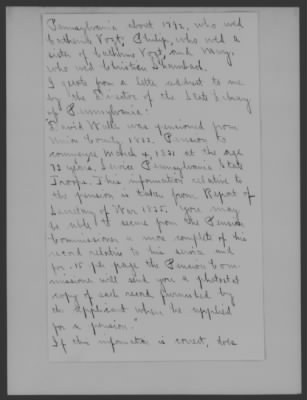 Pennsylvania about 1792, who wed
Catherine Vogt, Philip, who wed a
sister of Cathrine Vogt, and Mary,
who wed Christian Shambach.
I quote from a letter addrest to me
by the Director of the State Library
of Pennsylvania:
"David Wells was pensioned from
Union County 1833. Pension to
commence March 4, 1831 at the age
73 years, Service Pennsylvania State
Troops. This information relative to
the pension is taken from Report of
Secretary of War 1835. You may
be able to secure from the Pension
Commissioner a more complete of his
record relative to his service and
for .15 per page the Pension Com-
missioner will send you a photostat
copy of each record furnished by
the applicant when he applied
for a pension."
If this information is correct, does